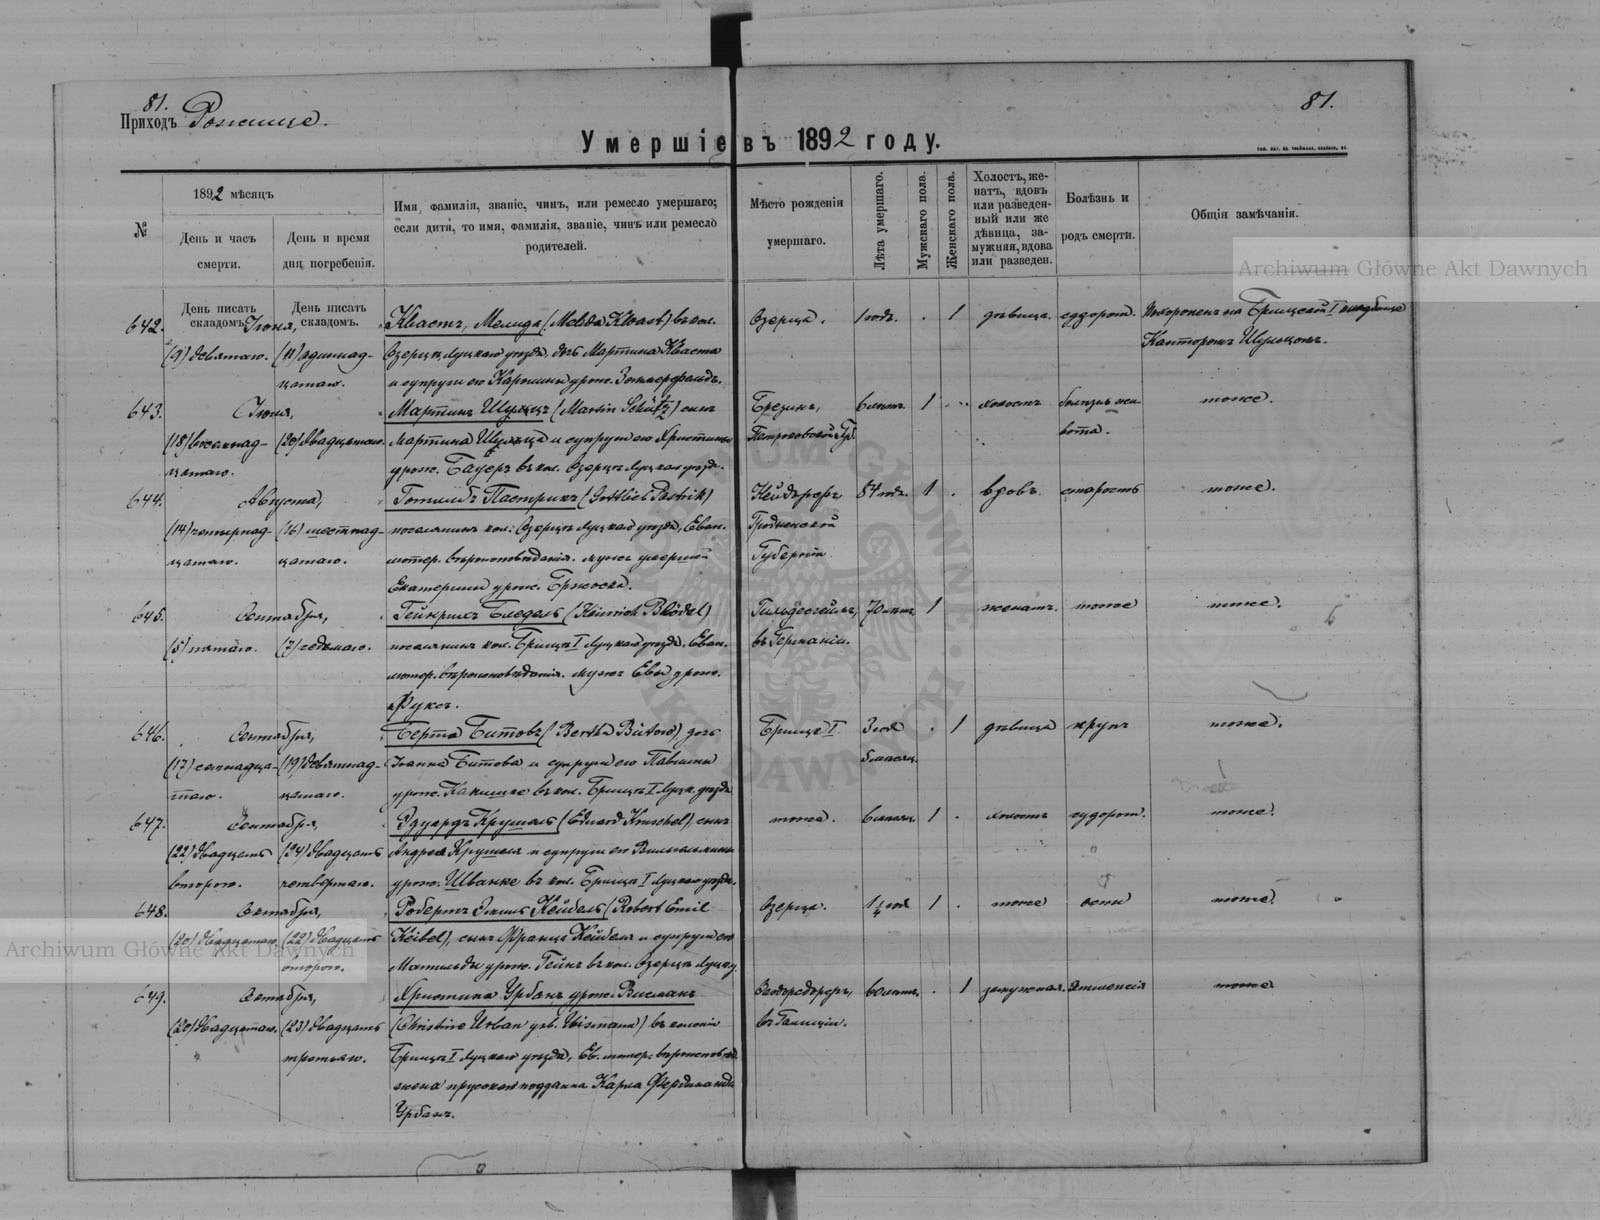 81.
81.
Приходъ Рожище.
Умершіе въ 1892 году.
№
1892 мѣсяцъ
День и часъ
смерти.
День и время
дня погребенія.
Имя, фамилія, званіе, чинъ, или ремесло умершаго;
если дитя, то имя, фамилія, званіе, чинъ или ремесло
родителей.
Мѣсто рожденія
умершаго.
Лѣта умершаго.
Мужскаго пола.
Женскаго пола.
Холостъ, же-
натъ, вдовъ
или разведен-
ный или же
дѣвица, за-
мужняя, вдова
или разведен.
Болѣзнь и
родъ смерти.
Общія замѣчанія.
Archiwum Główne Akt Dawnych
День писать
складомъ.
День писать
складомъ.
642. Іюня, Квастъ, Мелида (Melida Kwast) въ кол. Озерца. 1 годъ. . 1 дѣвица судорог. Похороненъ на Брищской I кладбище
(9) девятаго. (11) одиннад- Озерцѣ Луцкаго уѣзда дочь Мартина Кваста Канторомъ Шульцомъ.
цатаго. и супруги его Каролины урож. Зоммерфельдъ.
643. Іюня, Мартинъ Шуцъ (Martin Schütz) сынъ Брезинъ, 6 лѣтъ 1 . холостъ болѣзнь жи- тоже.
(18) восемнад- (20) двадцатаго. Мартина Шуца и супруги его Христины Петроковской Губ. вота.
цатаго. урож. Бауеръ въ кол. Озерцѣ Луцкаго уѣзда.
644. Августа, Готлибъ Пастрикъ (Gottlieb Pastrik) Нейдорфъ, 84 годъ. 1 . вдовъ старость тоже.
(14) четырнад- (16) шестнад- поселянинъ кол. Озерцѣ Луцкаго уѣзда, Еван. Гродненской
цатаго. цатаго. лютер. вѣроисповѣданія. мужъ умершей Губерніи
Екатерины урож.
645. Сентября, Гейнрихъ Бледель (Heinrich Blödel) Гильдесгеймъ, 70 лѣтъ 1 женатъ. тоже тоже.
(5) пятаго. (7) седьмаго. поселянинъ кол. Брищѣ I Луцкаго уѣзда. Еван. въ Германіи.
лютер. вѣроисповѣданія. мужъ Евы урож.
Фуксъ.
646. Сентября, Берта Битовъ (Berth Bütow) дочь Брище I 3 года . 1 дѣвица крупъ тоже.
(17) семнадца- (19) девятнад- Іоанна Битова и супруги его Павлины
таго. цатаго. урож. въ кол. Брищѣ I Луцк. уѣзда
647. Сентября, Эдуардъ Крушель (Eduard Kruschel), сынъ тоже. 6 мѣсяц. 1 . холостъ судорог. тоже.
(22) двадцать (24) двадцать Андрея Крушеля и супруги его Вильгельмины
второго. четвертаго. урож. Шванке въ кол. Брищѣ I Луцкаго уѣзда.
648. Октября, Робертъ Эмиль Кейбель (Robert Emil Озерца. 1 1/4 года 1 . тоже оспа тоже.
(20) двадцатаго. (22) двадцать Keibel), сынъ Франца Кейбеля и супруги его
второго. Матильды урож. Гейнъ въ кол. Озерцѣ Луцк. у.
649. Октября, Христина Урбанъ урож. Висманъ 60 лѣтъ. . 1 замужняя. тоже
(20) двадцатаго. (23) двадцать (Christine Urban geb. Wismann) въ колоніи въ Галиціи.
третьяго. Брищѣ I Луцкаго уѣзда, Ев. лютер. вѣроисповѣд.
жена прусскаго подданна Карла Фердинанда
Урбанъ.
Archiwum Główne Akt Dawnych
ARCHIWUM GŁÓWNE AKT DAWNYCH